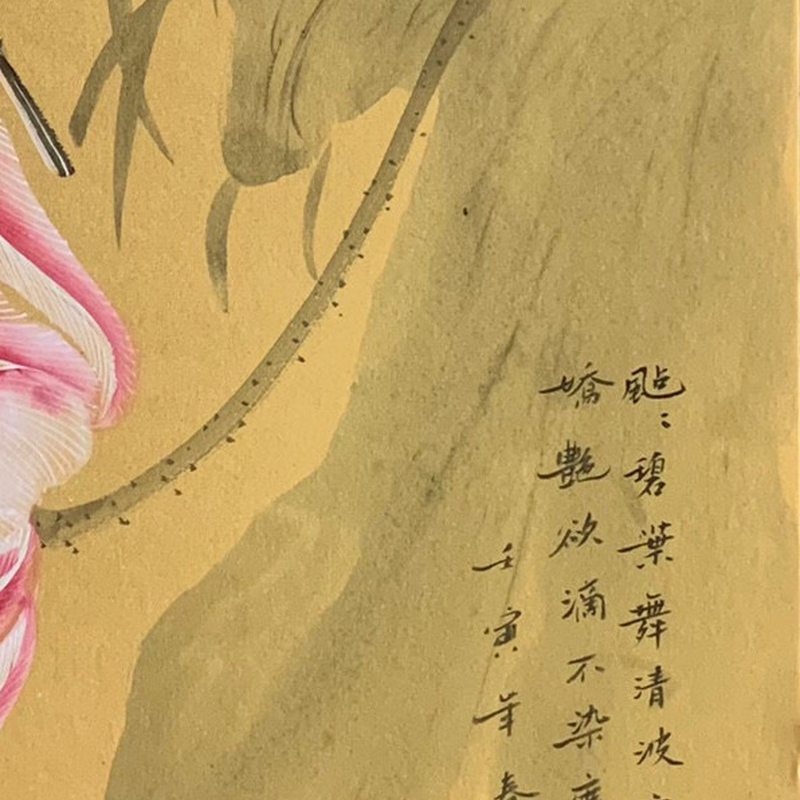 颭〻碧葉舞清波
嬌艷欲滴不染
壬寅年春